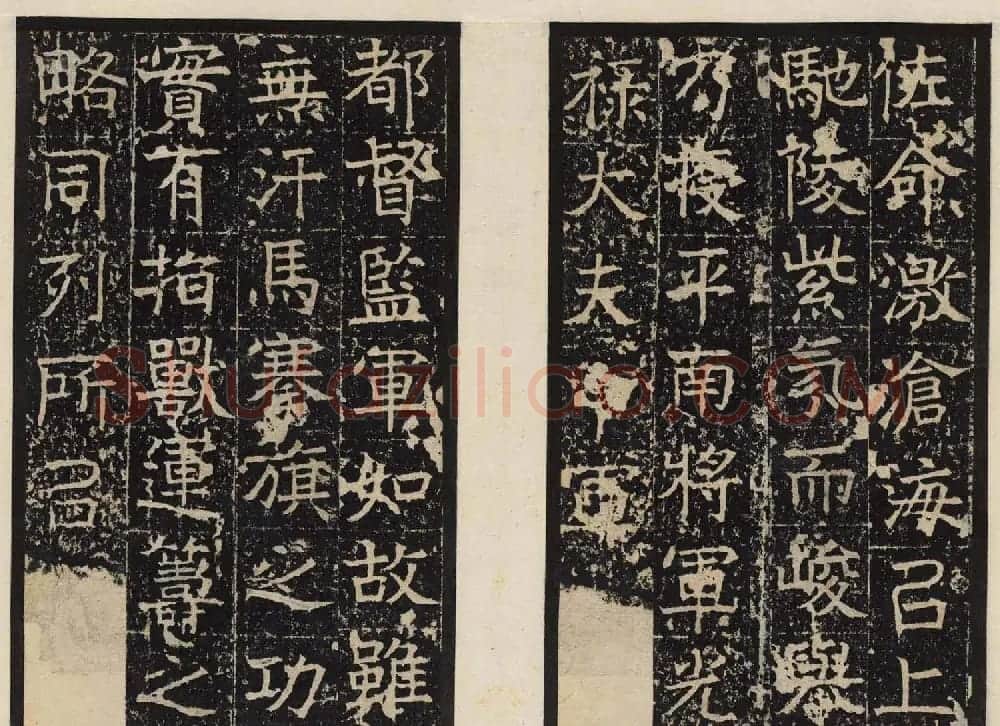 佐命激滄海㠯上
馳陵紫氛而峻舉
乃授平南將軍光
祿大夫中軍
都督監軍如故雖
無汗馬搴旗之功
實有指獸運籌之
略同列所㠯
Shufaziliao.COM